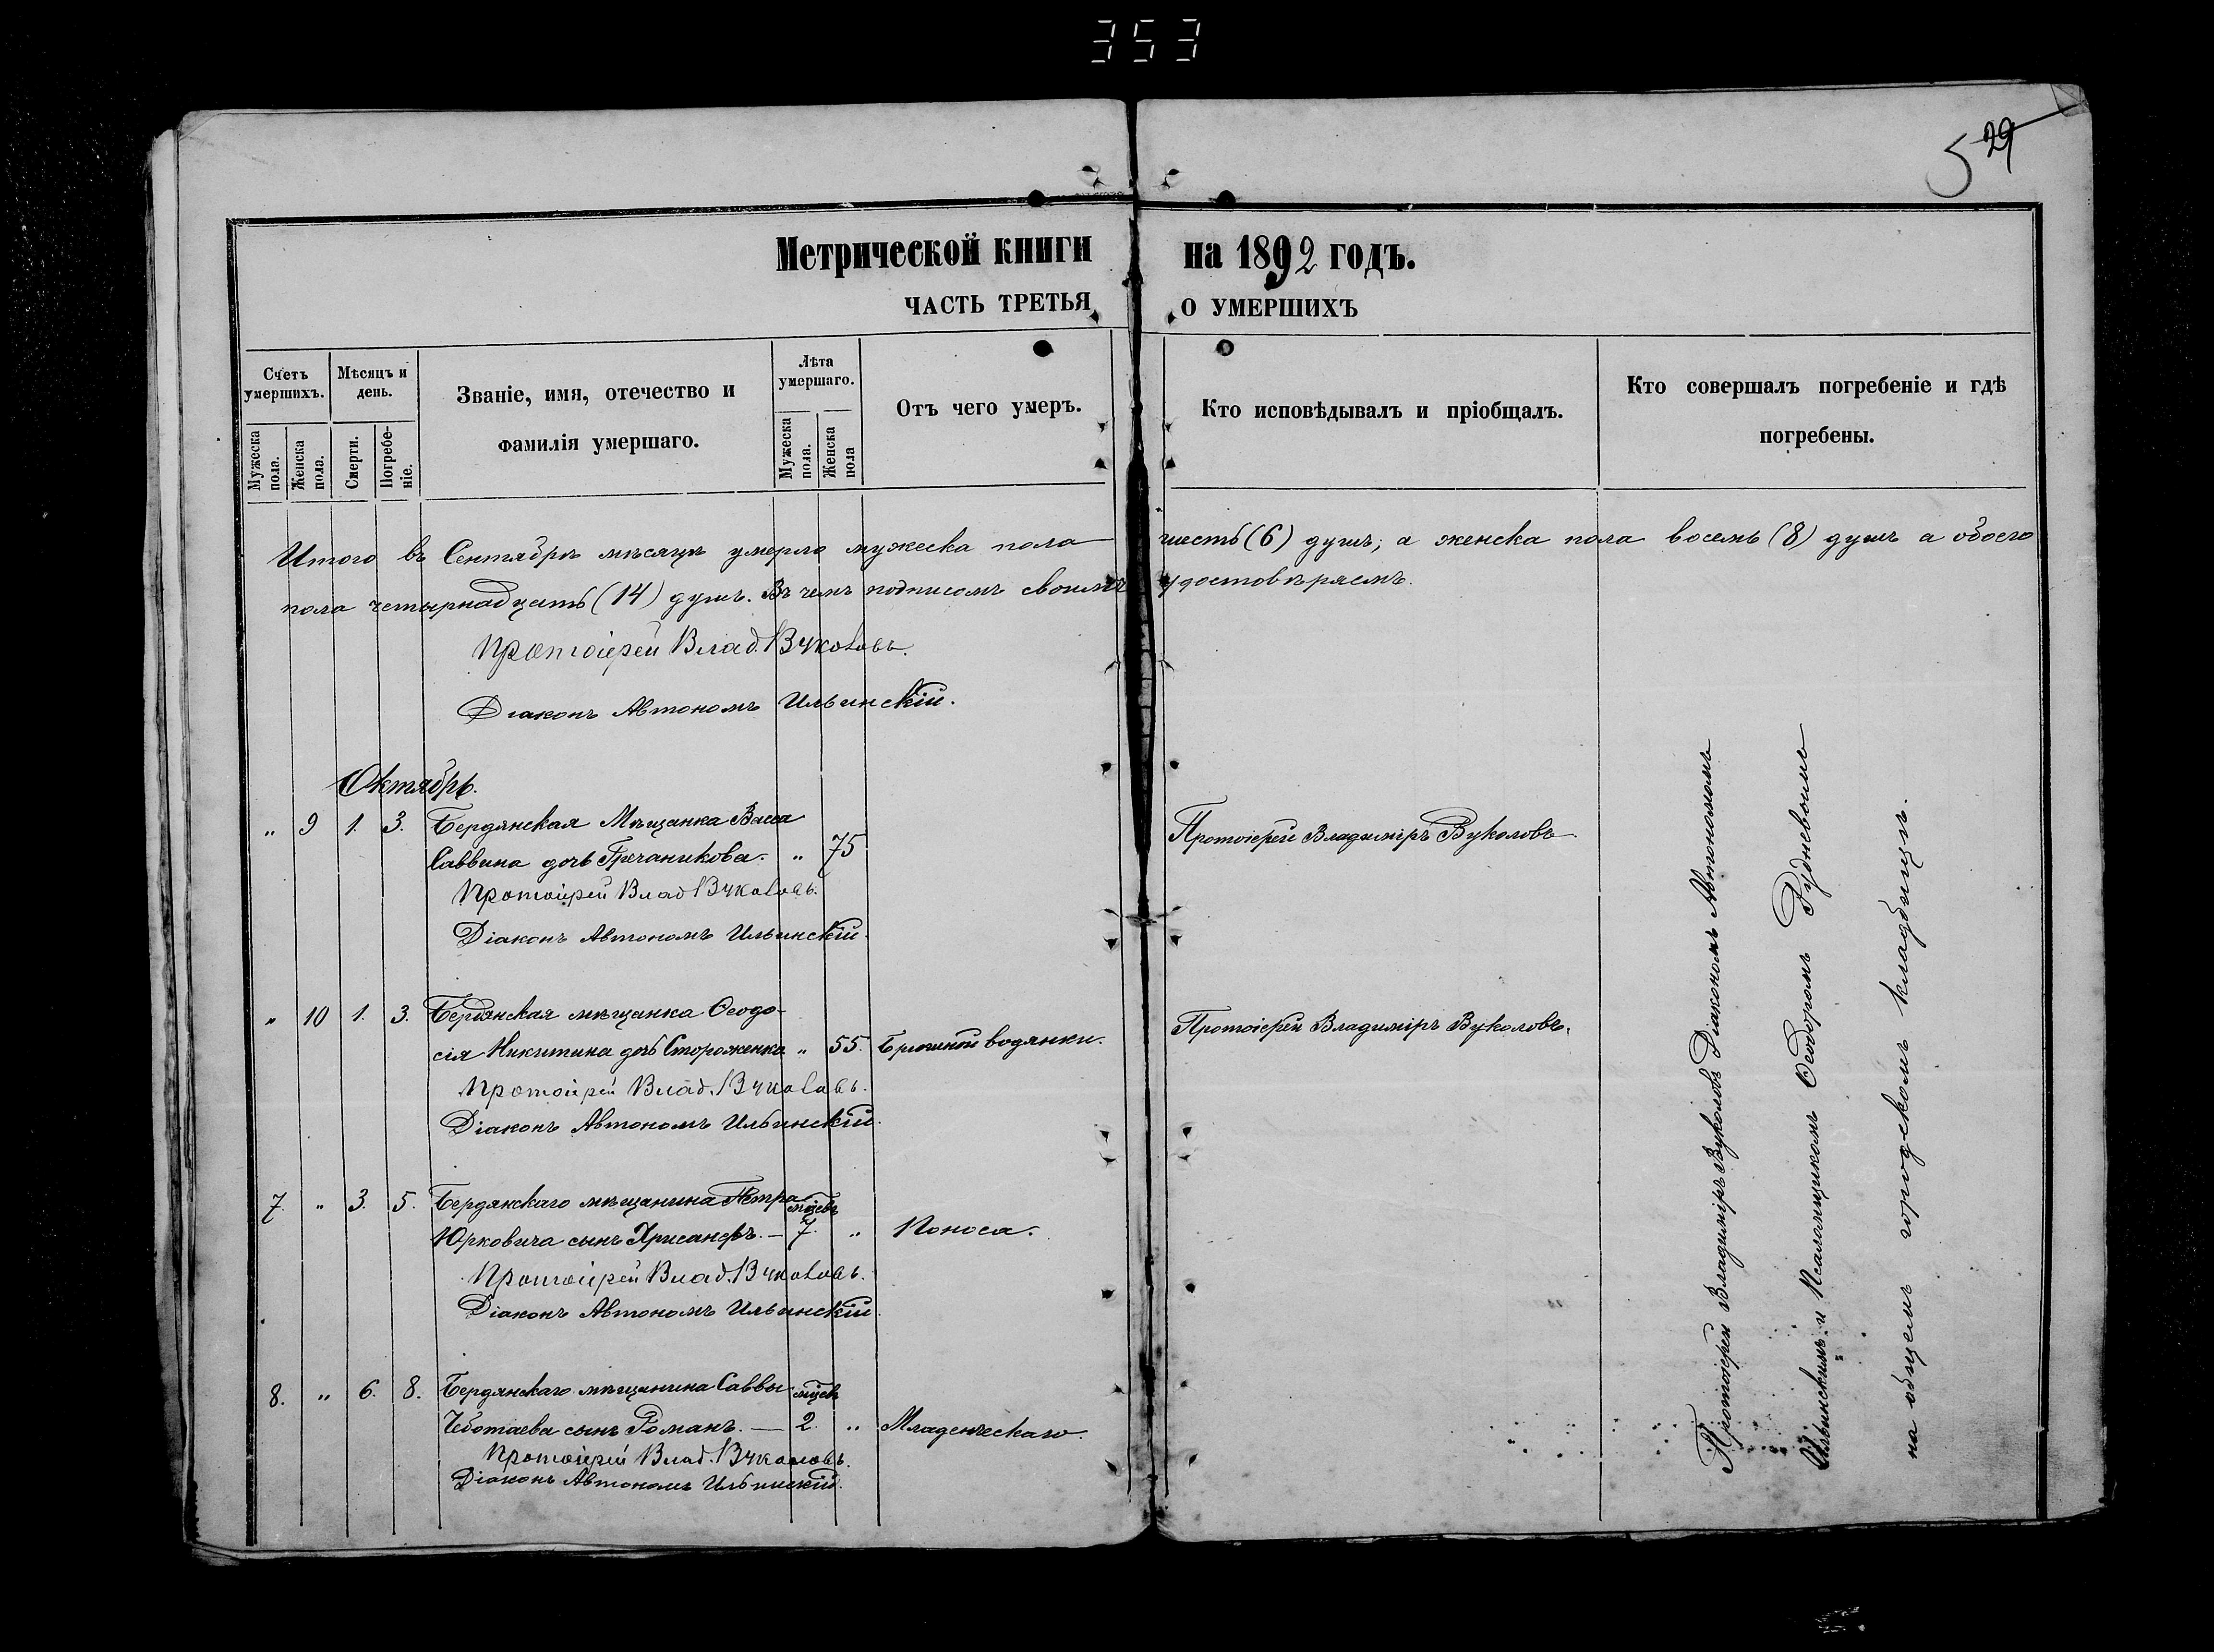 353
529
Метрической книги на 1892 годъ.
ЧАСТЬ ТРЕТЬЯ, О УМЕРШИХЪ
Счетъ умершихъ.
Мужеска пола.
Женска пола.
Мѣсяцъ и день.
Смерти.
Погребеніе.
Званіе, имя, отечество и фамилія умершаго.
Лѣта умершаго.
Мужеска пола.
Женска пола
Отъ чего умеръ.
Кто исповѣдывалъ и пріобщалъ.
Кто совершалъ погребеніе и гдѣ погребены.
Итого въ Сентябрѣ мѣсяцѣ умерло мужеска пола шесть (6) душъ; а женска пола восемь (8) душъ а обоего
пола четырнадцать (14) душъ. Въ чемъ подписомъ своимъ удостовѣряемъ.
Протоіерей Влад. Вуколовъ.
Діаконъ Автономъ Ильинскій.
Октябрь.
" 9 1. 3. Бердянская Мѣщанка Васса
Саввина дочь Гречаникова. " 75 Протоіерей Владиміръ Вуколовъ
Протоіерей Влад Вуколовъ.
Діаконъ Автономъ Ильинскій.
" 10 1. 3. Бердянская мѣщанка Ѳеодо-
сія Никитина дочь Стороженко " 55. Брюшной водянки. Протоіерей Владиміръ Вуколовъ.
Протоіерей Влад. Вуколовъ.
Діаконъ Автономъ Ильинскій.
7. " 3. 5. Бердянскаго мѣщанина Петра мѣсяц.
Юрковича сынъ Хрисанфъ. — 7. " Поноса.
Протоіерей Влад. Вуколовъ.
Діаконъ Автономъ Ильинскій.
8. " 6. 8. Бердянскаго мѣщанина Саввы мѣсяц.
Чеботаева сынъ Романъ. — 2. " Младенческаго.
Протоіерей Влад. Вуколовъ.
Діаконъ Автономъ Ильинскій.
Протоіерей Владиміръ Вуколовъ Діакономъ Автономомъ
Ильинскимъ и Псаломщикомъ Ѳеодоромъ Рудневымъ
на общемъ городскомъ кладбищѣ.